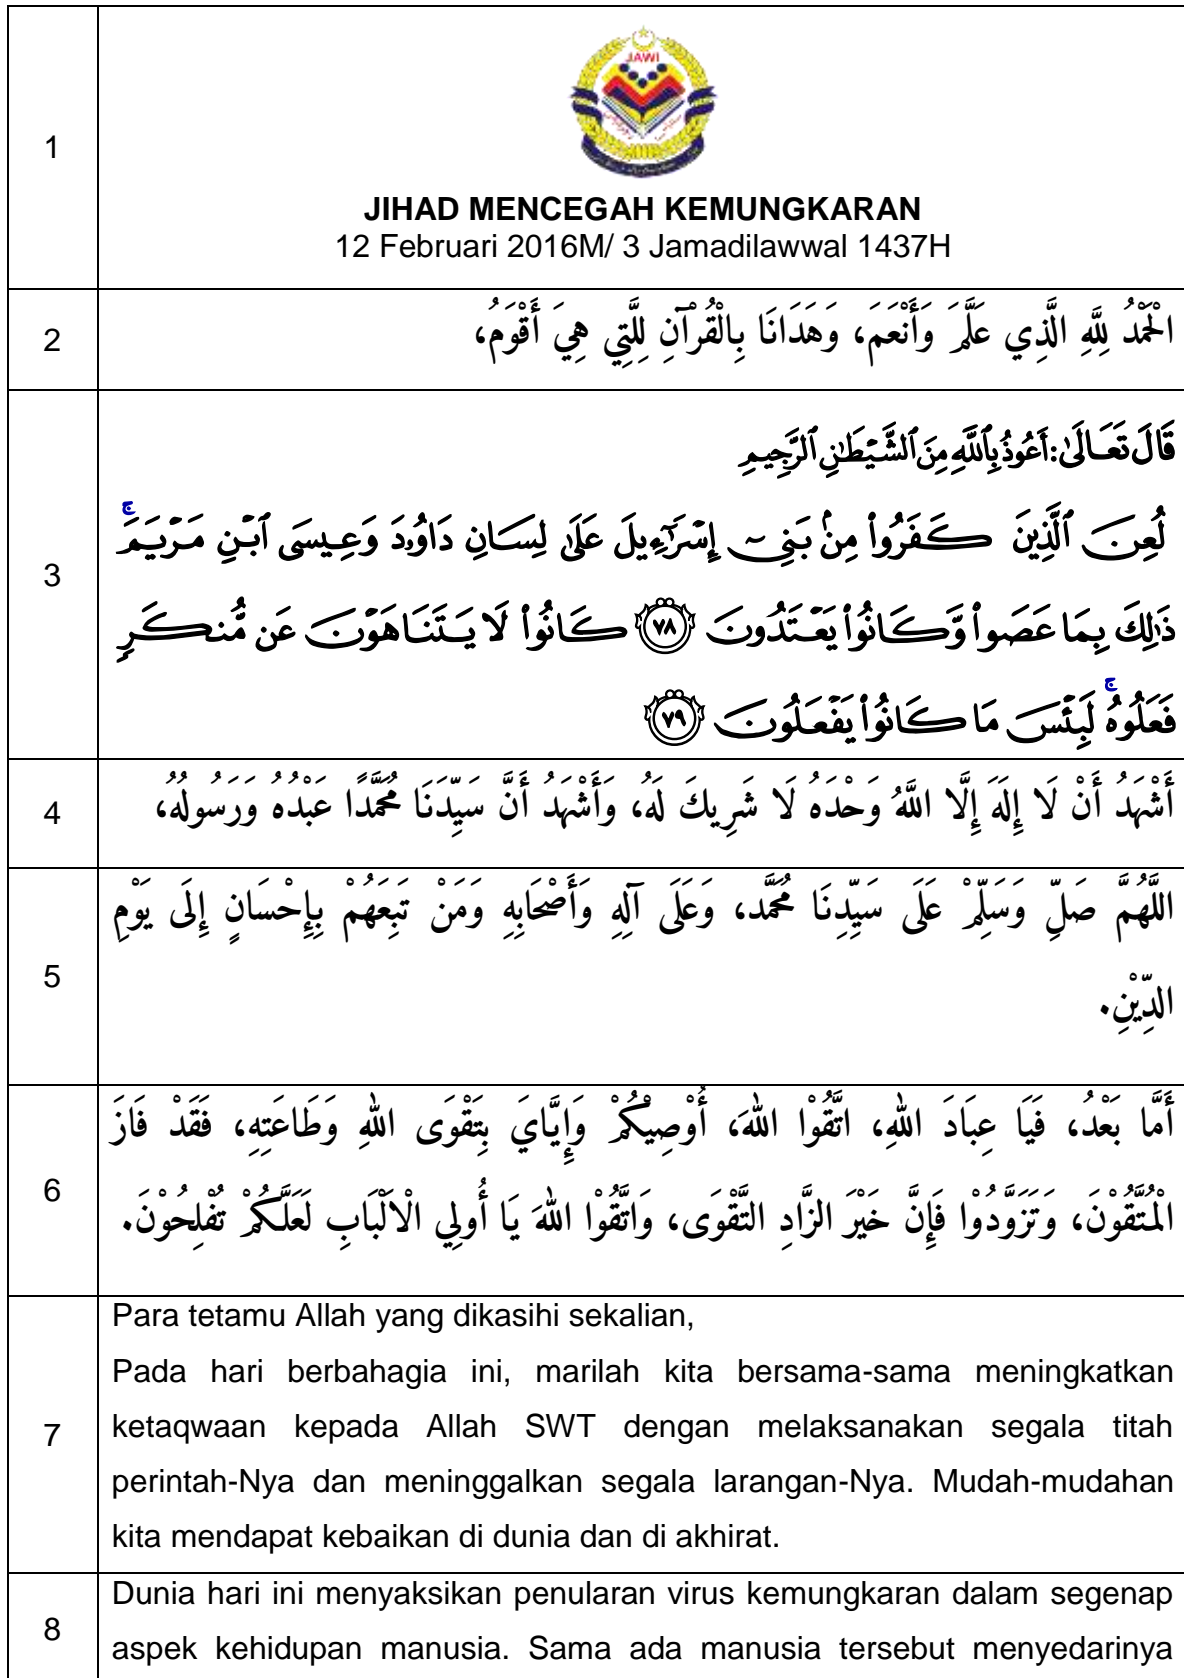 1
JAWI
JIHAD MENCEGAH KEMUNGKARAN
12 Februari 2016M/ 3 Jamadilawwal 1437H
2
الْحَمْدُ لِلَّهِ الَّذِي عَلَّمَ وَأَنْعَمَ، وَهَدَانَا بِالْقُرْآنِ لِلَّتِي هِيَ أَقْوَمُ،
3
قَالَ تَعَالَىٰ: أَعُوذُ بِٱللَّهِ مِنَ ٱلشَّيْطَٰنِ ٱلرَّجِيمِ
لُعِنَ ٱلَّذِينَ كَفَرُواْ مِنۢ بَنِيٓ إِسْرَٰٓءِيلَ عَلَىٰ لِسَانِ دَاوُۥدَ وَعِيسَى ٱبْنِ مَرْيَمَ ۚ
ذَٰلِكَ بِمَا عَصَواْ وَّكَانُواْ يَعْتَدُونَ ﴿٧٨﴾ كَانُواْ لَا يَتَنَاهَوْنَ عَن مُّنكَرٍ
فَعَلُوهُ ۚ لَبِئْسَ مَا كَانُواْ يَفْعَلُونَ ﴿٧٩﴾
4
أَشْهَدُ أَنْ لَا إِلَهَ إِلَّا اللَّهُ وَحْدَهُ لَا شَرِيكَ لَهُ، وَأَشْهَدُ أَنَّ سَيِّدَنَا مُحَمَّدًا عَبْدُهُ وَرَسُولُهُ،
5
اللَّهُمَّ صَلِّ وَسَلِّمْ عَلَى سَيِّدِنَا مُحَمَّد، وَعَلَى آلِهِ وَأَصْحَابِهِ وَمَنْ تَبِعَهُمْ بِإِحْسَانٍ إِلَى يَوْمِ
الدِّيْنِ.
6
أَمَّا بَعْدُ، فَيَا عِبَادَ اللهِ، اتَّقُوْا اللهَ، أُوْصِيْكُمْ وَإِيَّايَ بِتَقْوَى اللهِ وَطَاعَتِهِ، فَقَدْ فَازَ
الْمُتَّقُوْنَ، وَتَزَوَّدُوْا فَإِنَّ خَيْرَ الزَّادِ التَّقْوَى، وَاتَّقُوْا اللهَ يَا أُولِي الْاَلْبَابِ لَعَلَّكُمْ تُفْلِحُوْنَ.
7
Para tetamu Allah yang dikasihi sekalian,
Pada hari berbahagia ini, marilah kita bersama-sama meningkatkan
ketaqwaan kepada Allah SWT dengan melaksanakan segala titah
perintah-Nya dan meninggalkan segala larangan-Nya. Mudah-mudahan
kita mendapat kebaikan di dunia dan di akhirat.
8
Dunia hari ini menyaksikan penularan virus kemungkaran dalam segenap
aspek kehidupan manusia. Sama ada manusia tersebut menyedarinya